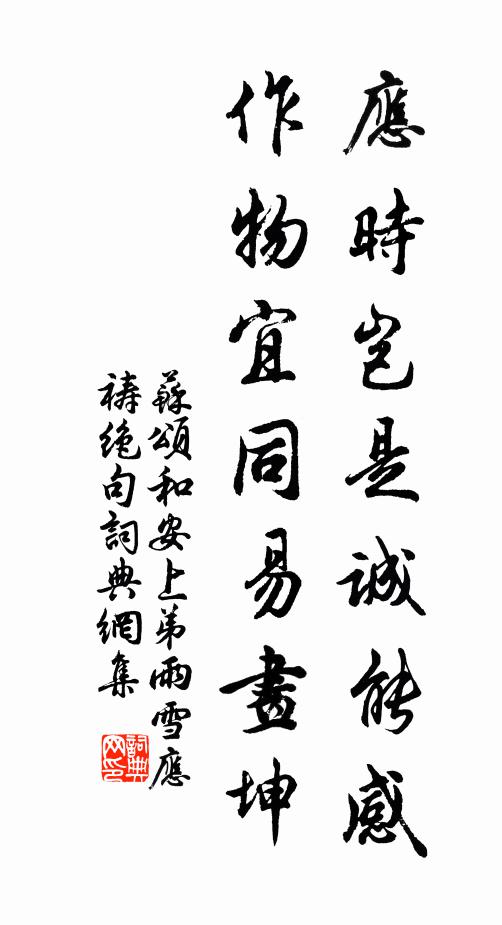 應時豈是誠能感
作物宜同易畫坤
蘇頌和安上弟雨雪應
禱絕句詞典網集
詞典
网印